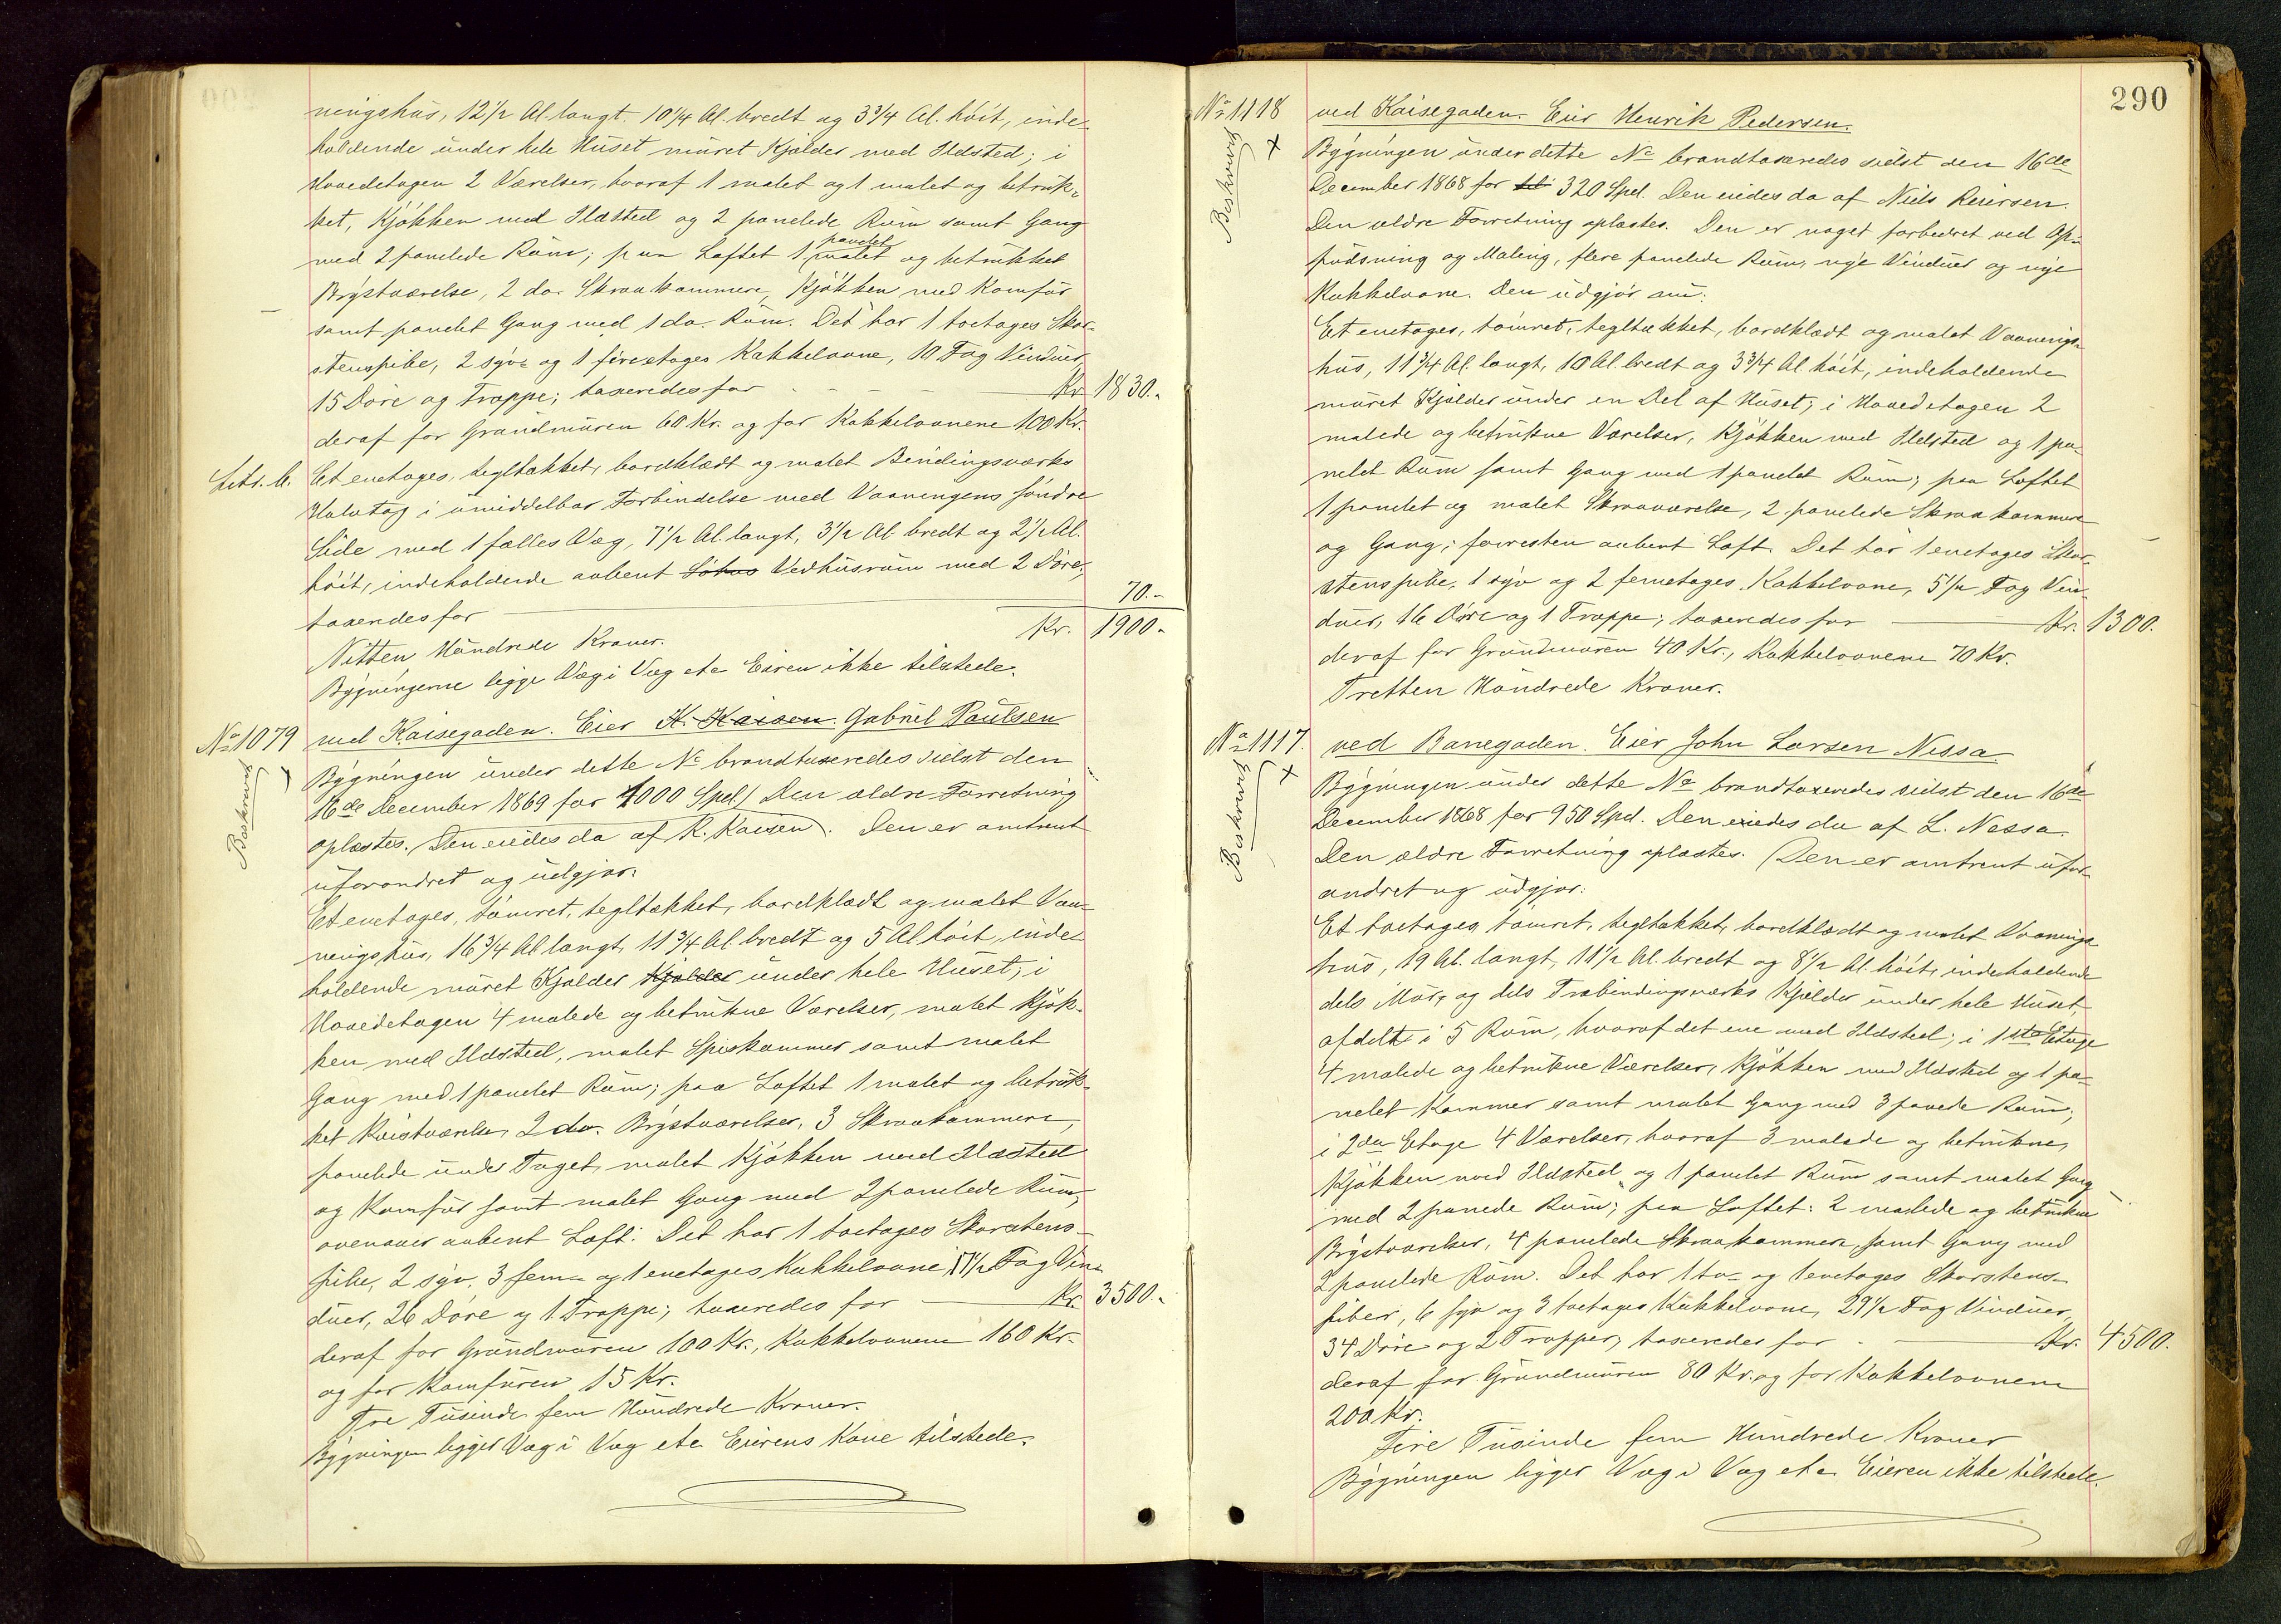 ningshus, 12 1/2 Al. langt. 10 1/4 Al. bredt og 3 3/4 Al. höit, inde-
holdende under hele Huset muret Kjælder med Ildsted; i
Hovedetagen 2 Værelser, hvoraf 1 malet og 1 malet og betruk-
ket, Kjökken med Ildsted og 2 panelede Rum samt Gang
med 2 panelede Rum; paa Loftet 1 panelet malet og betrukket
Brystværelse, 2 do. Skraakammere, Kjökken med Komfur
samt panelet Gang med 1 do. Rum. Det har 1 toetages Skor-
stenspibe, 2 syv- og 1 fireetages Kakkelovne, 10 Fag Vinduer,
15 Döre og Trappe; taxeredes for - - - Kr. 1830.-
deraf for Grundmuren 60 Kr. og for Kakkelovnene 100 Kr.
Litr. b. Et enetages, tegltækket, bordklædt og malet Bindingsværks
Halvtag i umiddelbar Forbindelse med Vaaningens söndre
Side med 1 fælles Væg, 7 1/2 Al. langt, 3 1/2 Al. bredt og 2 1/2 Al.
höit, indeholdende aabent Vedhusrum med 2 Döre;
taxeredes for 70.-
Kr. 1900.-
Nitten Hundrede Kroner.
Bygningerne ligge Væg i Væg etc Eieren ikke tilstede.
No 1079 ved Kaisegaden. Eier K. Kaisen. Gabriel Paulsen
Beskrevet
Bygningen under dette No brandtaxeredes sidst den
16de December 1869 for 1000 Spd.) Den ældre Forretning
oplæstes. Den eiedes da af K. Kaisen). Den er omtrent
uforandret og udgjör:
Et enetages, tömret, tegltækket, bordklædt og malet Vaa-
ningshus, 16 3/4 Al. langt, 11 3/4 Al. bredt og 5 Al. höit, inde-
holdende muret Kjælder Kjælder under hele Huset; i
Hovedetagen 4 malede og betrukne Værelser, malet Kjök-
ken med Ildsted, malet Spiskammer samt malet
Gang med 1 panelet Rum; paa Loftet 1 malet og betruk-
ket Kvistværelse, 2 do. Brystværelser, 3 Skraakammere,
panelede under Taget, malet Kjökken med Ildsted
og Komfur samt malet Gang med 2 panelede Rum,
ovenover aabent Loft. Det har 1 toetages Skorstens-
pibe, 2 syv, 3 fem- og 1 enetages Kakkelovne, 17 1/2 Fag Vin-
duer, 26 Döre og 1 Trappe; taxeredes for Kr. 3500.-
deraf for Grundmuren 100 Kr., Kakkelovnene 160 Kr.
og for Komfuren 15 Kr.
Tre Tusinde fem Hundrede Kroner.
Bygningen ligger Væg i Væg etc Eierens Kone tilstede.
290
No 1118 ved Kaisegaden. Eier Henrik Pedersen.
Beskrevet x
Bygningen under dette No brandtaxeredes sidst den 16de
December 1868 for 320 Spd. Den eiedes da af Niels Reiersen.
Den ældre Forretning oplæstes. Den er noget forbedret ved Op-
pudsning og Maling, flere panelede Rum, nye Vinduer og nye
Kakkelovne. Den udgjör nu:
Et enetages, tömret, tegltækket, bordklædt og malet Vaanings-
hus, 11 3/4 Al. langt, 10 Al. bredt og 3 3/4 Al. höit, indeholdende
muret Kjælder under en Del af Huset; i Hovedetagen 2
malede og betrukne Værelser, Kjökken med Ildsted og 1 pa-
nelet Rum samt Gang med 1 panelet Rum; paa Loftet
1 panelet og malet Skraaværelse, 2 panelede Skraakammere
og Gang; forresten aabent Loft. Det har 1 enetages Skor-
stenspibe, 1 syv og 2 femetages Kakkelovne, 5 1/2 Fag Vin-
duer, 16 Döre og 1 Trappe; taxeredes for Kr. 1300.
deraf for Grundmuren 40 Kr., Kakkelovnene 70 Kr.
Tretten Hundrede Kroner.
No 1117. ved Banegaden. Eier John Larsen Nessa
Beskrevet x
Bygningen under dette No brandtaxeredes sidst den 16de
December 1868 for 950 Spd. Den eiedes da af L. Nessa.
Den ældre Forretning oplæstes. (Den er omtrent ufor-
andret og udgjör:
Et toetages, tömret, tegltækket, bordklædt og malet Vaanings-
hus, 19 Al. langt, 11 1/2 Al. bredt og 8 1/2 Al. höit, indeholdende
dels Mur- og dels Træbindingsværks Kjælder under hele Huset,
afdelt i 5 Rum, hvoraf det ene med Ildsted; i 1ste Etage
4 malede og betrukne Værelser, Kjökken med Ildsted og 1 pa-
nelet Kammer samt malet Gang med 3 panede Rum;
i 2den Etage 4 Værelser, hvoraf 3 malede og betrukne,
Kjökken med Ildsted og 1 panelet Rum samt malet Gang
med 2 panede Rum; paa Loftet: 2 malede og betrukne
Brystværelser, 4 panelede Skraakammere samt Gang med
2 panelede Rum. Det har 1 to- og 1 enetages Skorstens-
piber, 6 syv og 3 toetages Kakkelovne, 29 1/2 Fag Vinduer,
34 Döre og 2 Trapper, taxeredes for Kr. 4500.
deraf for Grundmuren 80 Kr. og for Kakkelovnene
200 Kr.
Fire Tusinde fem Hundrede Kroner
Bygningen ligger Væg i Væg etc. Eieren ikke tilstede.